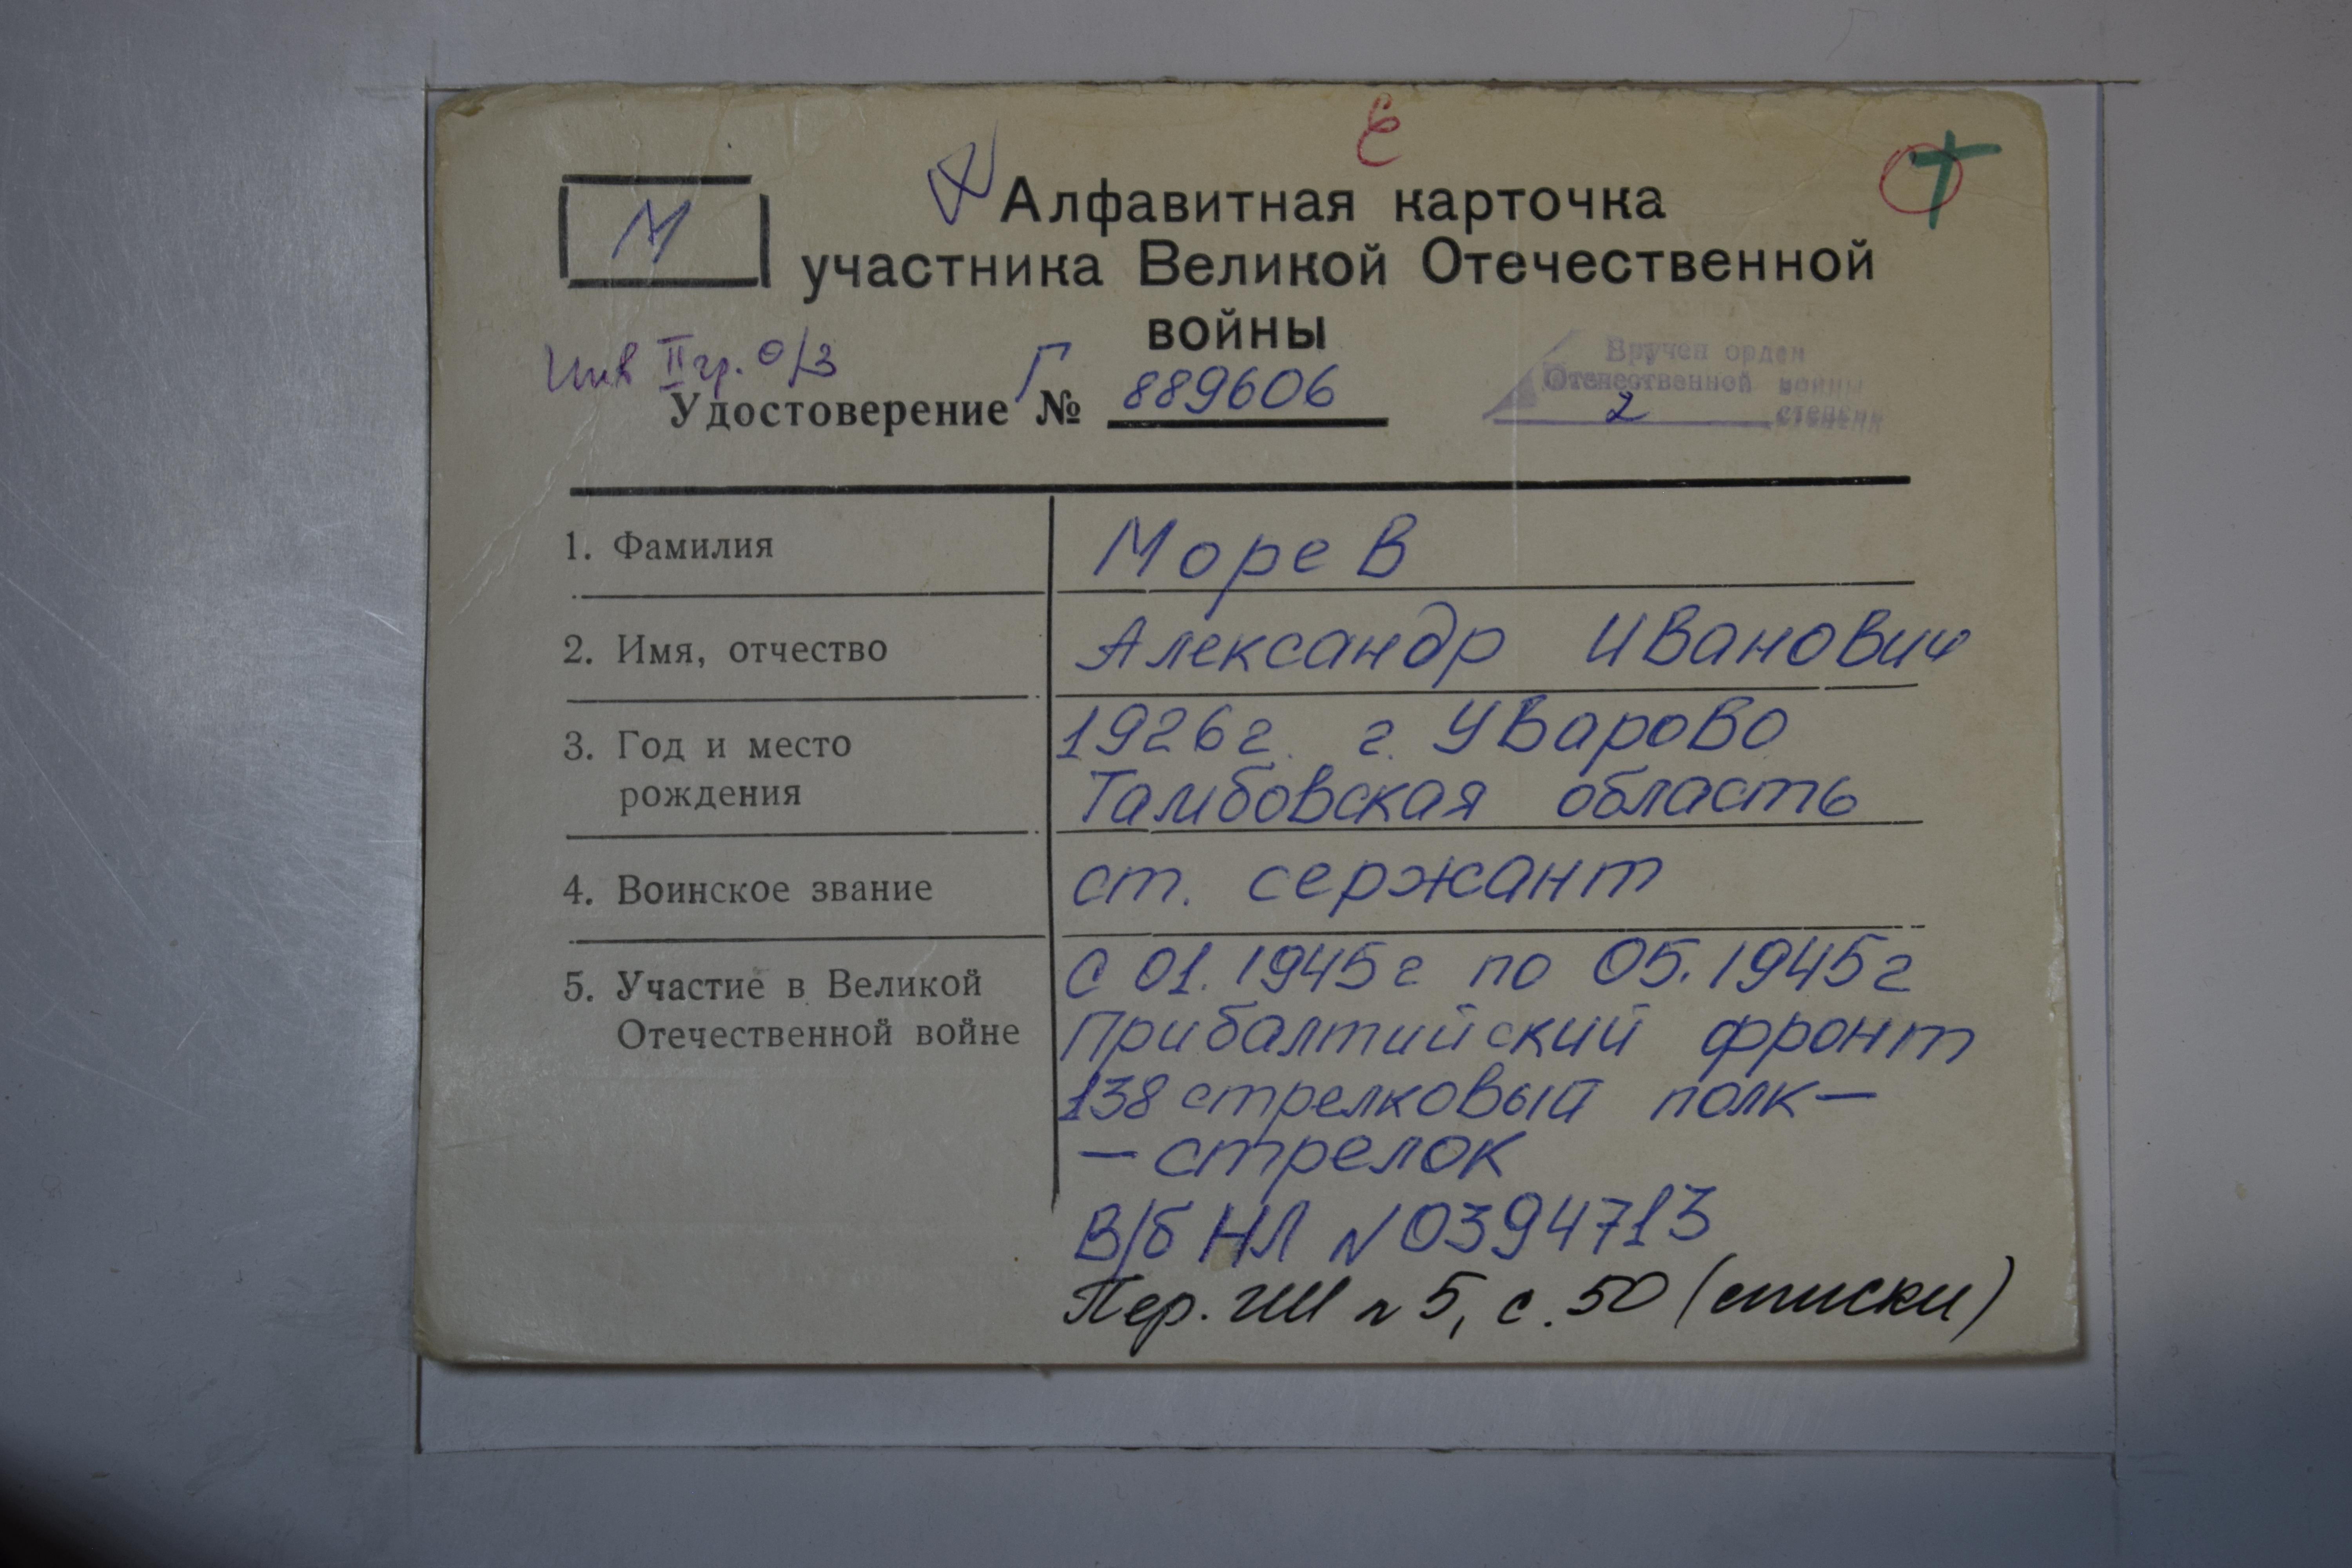 М
Алфавитная карточка
участника Великой Отечественной
войны
Инв II гр. о/з
Удостоверение Г № 889606
Вручен орден
Отечественной войны
2 степени
1. Фамилия
Морев
2. Имя, отчество
Александр Иванович
3. Год и место
рождения
1926г. г. Уварово
Тамбовская область
4. Воинское звание
ст. сержант
5. Участие в Великой
Отечественной войне
с 01.1945г по 05.1945г
Прибалтийский фронт
138 стрелковый полк –
– стрелок
В/б НЛ № 0394713
Пер. № 5, с. 50 (списки)